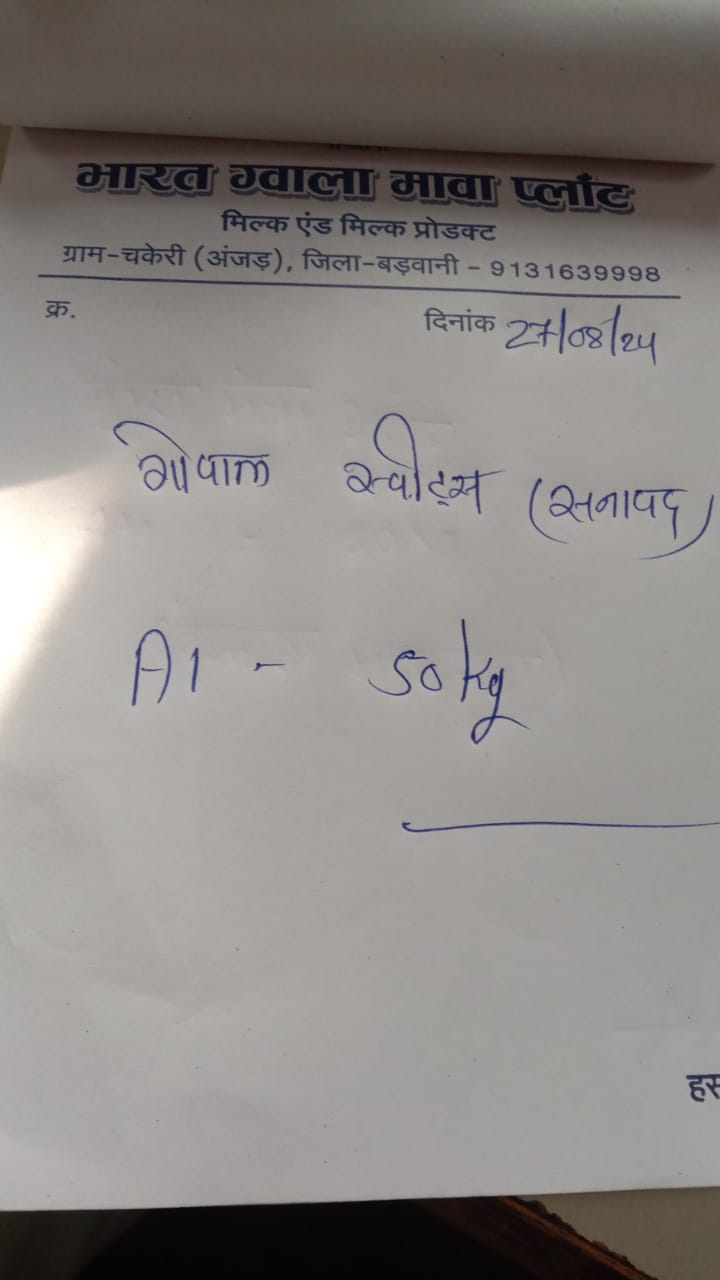 भारत ग्वाला मावा प्लाँट
मिल्क एंड मिल्क प्रोडक्ट
ग्राम-चकेरी (अंजड़), जिला-बड़वानी - 9131639998
क्र. दिनांक 27/08/24
गोपाल स्वीट्स (सनावद)
A1 - 50 kg
हस